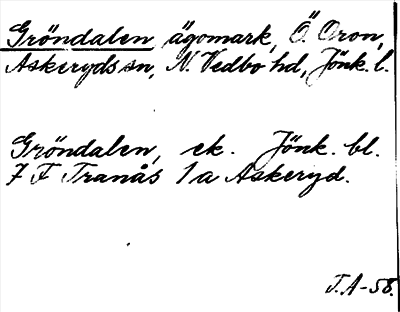 Gröndalen ägomark, Ö. Oron,
Askeryds sn, N. Vedbo hd, Jönk. l.
Gröndalen, ek. Jönk. bl.
7 F Tranås 1 a Askeryd.
J.A-58.